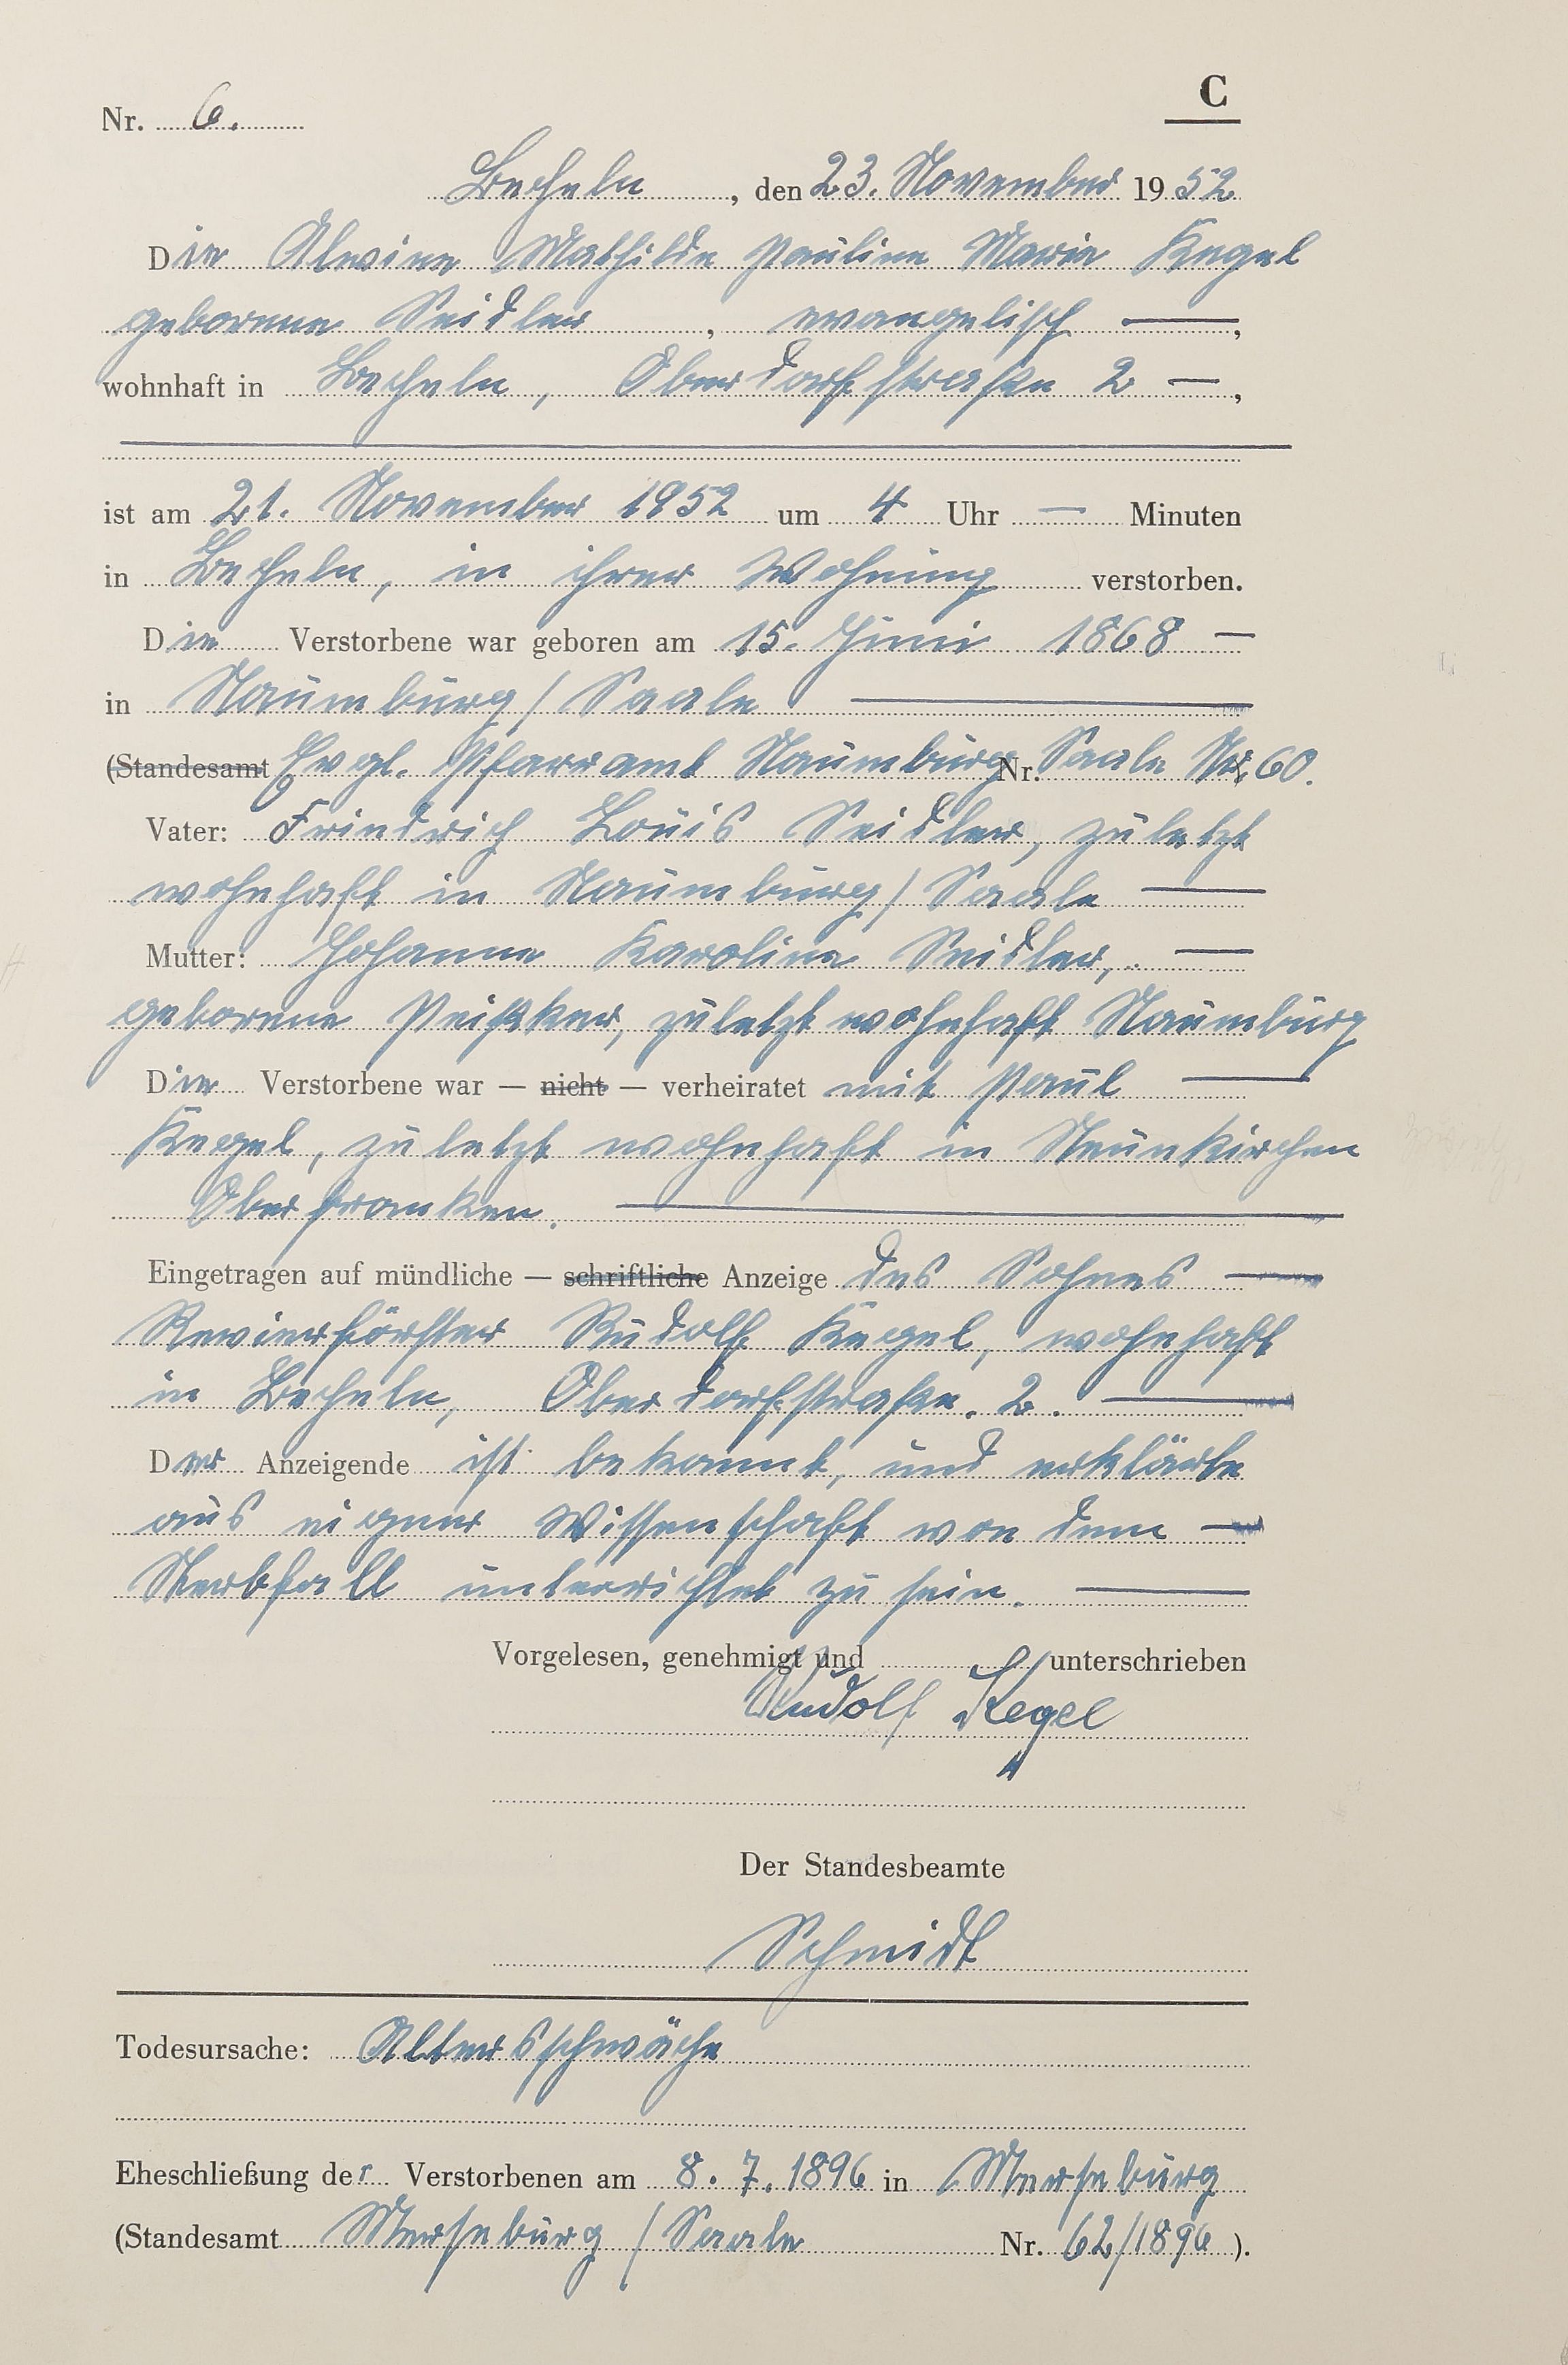 C
Nr. 6.
Becheln, den 23. November 1952
Die Alwine Mathilde Pauline Marie Kegel
geborene Seidler, evangelisch —,
wohnhaft in Becheln, Oberdorfstraße 2 —,
ist am 21. November 1952 um 4 Uhr — Minuten
in Becheln, in ihrer Wohnung verstorben.
Die Verstorbene war geboren am 15. Juni 1868 —
in Naumburg/Saale —
(Standesamt Evgl. Pfarramt Naumburg Nr. Saale Nr. 60.
Vater: Friedrich Louis Seidler, zuletzt
wohnhaft in Naumburg/Saale —
Mutter: Johanne Karoline Seidler, —
geborene Peißker, zuletzt wohnhaft Naumburg
Die Verstorbene war — nicht — verheiratet mit Paul —
Kegel, zuletzt wohnhaft in Neunkirchen
Oberfranken. —
Eingetragen auf mündliche — schriftliche Anzeige des Sohnes —
Revierförster Rudolf Kegel, wohnhaft
in Becheln, Oberdorfstraße. 2. —
Der Anzeigende ist bekannt, und erklärte
aus eigner Wissenschaft von dem —
Sterbfall unterrichtet zu sein. —
Vorgelesen, genehmigt und unterschrieben
Rudolf Kegel
Der Standesbeamte
Schmidt
Todesursache: Altersschwäche
Eheschließung der Verstorbenen am 8. 7. 1896 in Merseburg
(Standesamt Merseburg / Saale Nr. 62/1896 ).